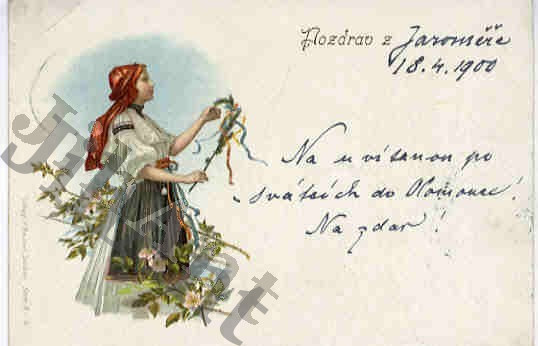 Pozdrav z Jaroměře
18.4.1900
Na uvítanou po
svátcích do Olomouce!
Na zdar!